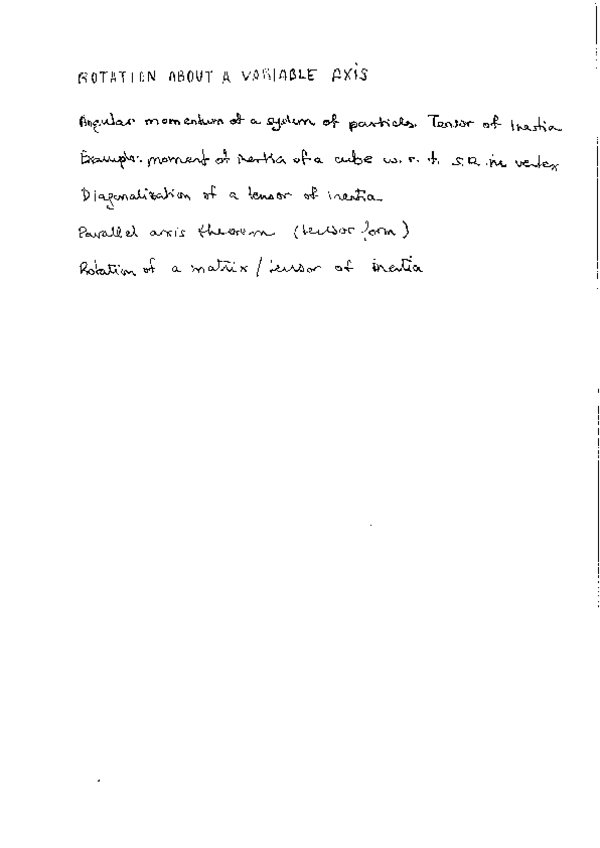 ROTATION ABOUT A VARIABLE AXIS
Angular momentum of a system of particles. Tensor of Inertia
Example: moment of inertia of a cube w. r. t. S.R. in vertex
Diagonalization of a tensor of inertia
Parallel axis theorem (tensor form)
Rotation of a matrix / tensor of inertia